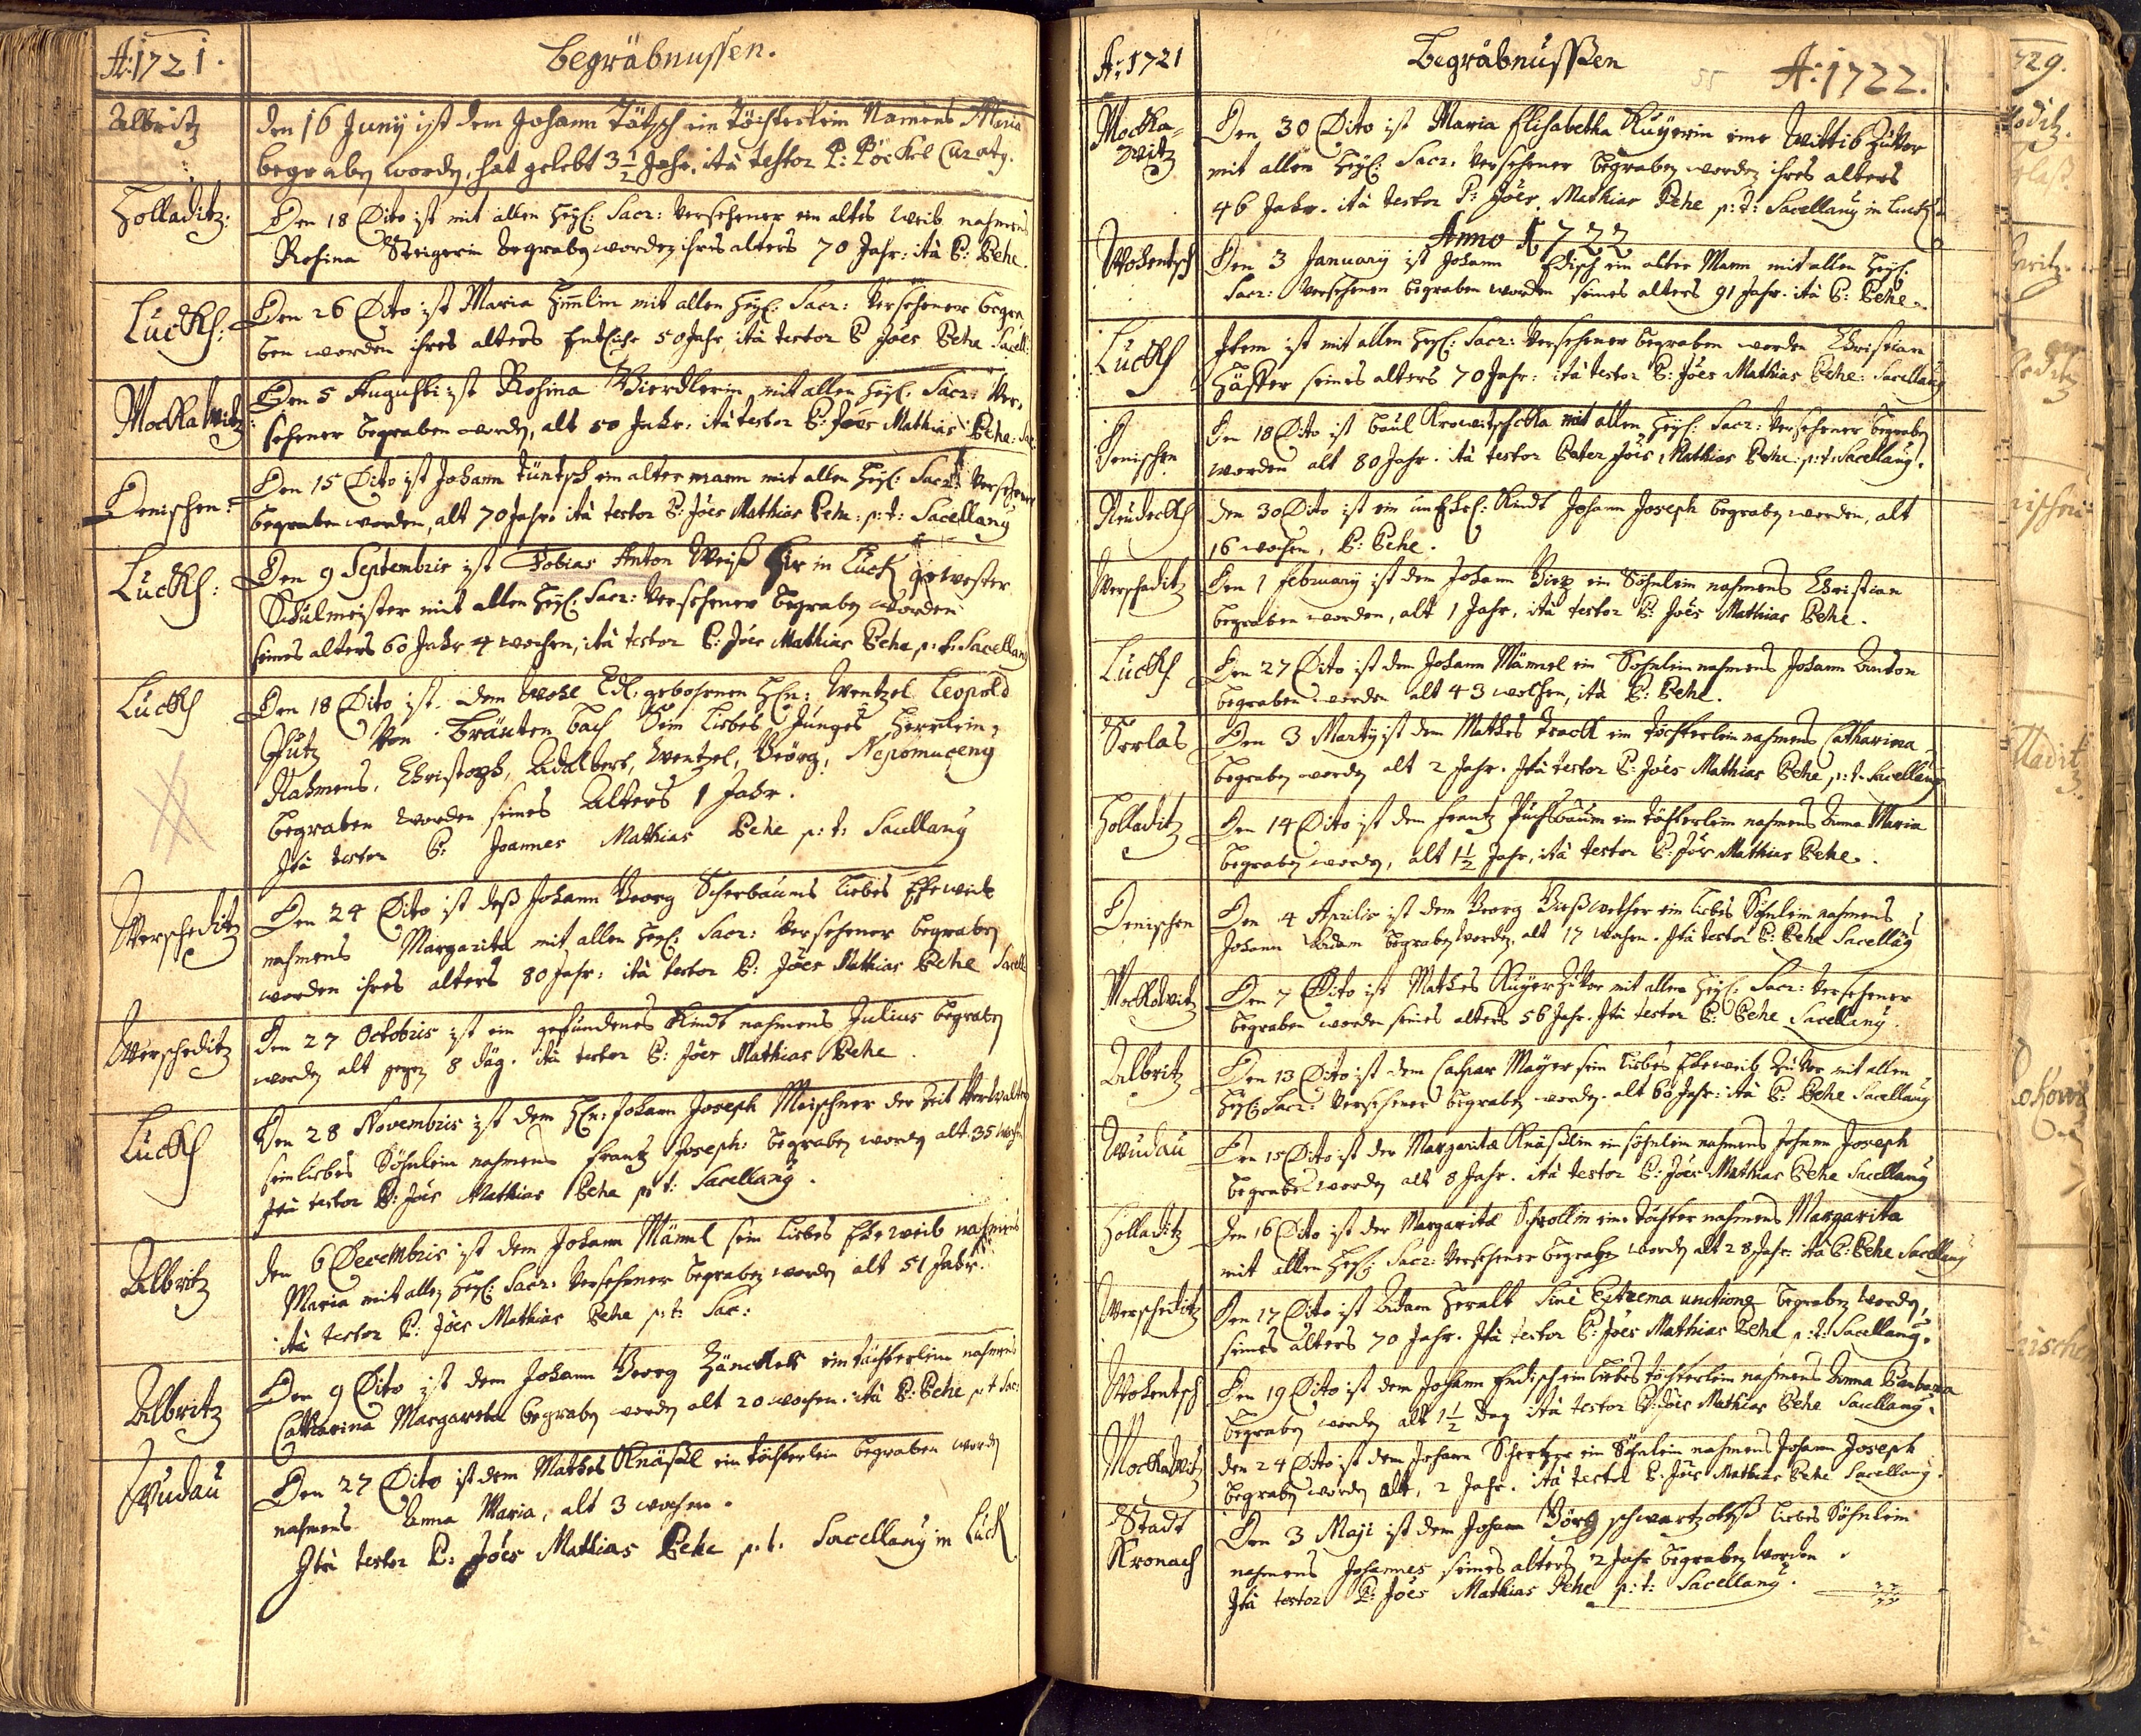 A: 1721.
Begräbnussen.
Albritz
den 16 Juny ist dem Johann Tätsch ein Töchterlein Namens Maria
begraben worden, hat gelebt 3 1/2 Jahr. ità testor P: Pöckel Curatg.
Holladitz:
Den 18 Dito ist mit allen Heyl: Sacr: Versehener ein altes Weib nahmens
Rosina Steigerin begraben worden ihres alters 70 Jahr: ità P: Behe.
Luckh:
Den 26 Dito ist Maria Himlin mit allen Heyl: Sacr: Versehener begra
ben worden ihres alters 50 Jahr, ità testor P Joës Behe Sacell:
Mockawitz
Den 5 Augusti ist Rosina Vierdlerin mit allen Heyl: Sacr: Ver,
sehener begraben worden, alt 50 Jahr. ità testor P: Joës Mathias Behe: Sac:
Denischen:
Den 15 Dito ist Johann Tüntsch ein alter mann mit allen Heyl: Sacr: Versehener
begraben worden, alt 70 Jahr: ità testor P: Joës Mathias Behe: p: t: Sacellang
Luckh:
Den 9 Septembris ist Tobias Anton Weiß hir in Luck gewester
Schulmeister mit allen Heyl: Sacr: Versehener begraben worden
seines alters 60 Jahr 4 wochen, ità testor P: Joës Mathias Behe p: t: Sacellang
Luckh
Den 18 Dito ist dem Wohl Edl. gebohrnen Hhn: Wentzel Leopold
Von Bräuten bach Sein liebes Junges Herrlein,
Nahmens, Christoph, Adalbert, Wentzel, Geörg, Nepomuceng
begraben worden seines Alters 1 Jahr.
Ità testor P: Joannes Mathias Behe p: t: Sacellang
Werscheditz
Den 24 Dito ist deß Johann Georg Scherbaums liebes Eheweib
nahmens Margarita mit allen Heyl: Sacr: Versehener begraben
worden ihres alters 80 Jahr: ità testor P: Joës Mathias Behe Sacell
Werscheditz
Den 27 Octobris ist ein gefundenes Kindt nahmens Julius begraben
worden alt gegen 8 Däg. ità testor P: Joës Mathias Behe.
Luckh
Den 28 Novembris ist dem Hhn: Johann Joseph Meischner der Zeit Verwalter
sein liebes Söhnlein nahmens Frantz Joseph: begraben worden alt. 35 woch
Ità testor P: Joës Mathias Behe p: t: Sacellang.
Albritz
Den 6 Decembris ist dem Johann Männl sein liebes Eheweib nahmens
Maria mit allen Heyl: Sacr: Versehener begraben worden alt 51 Jahr.
ità testor P: Joës Mathias Behe p: t: Sac:
Albritz
Den 9 Dito ist dem Johann Georg Hänckels ein töchterlein nahmens
Catharina Margaretha begraben worden alt 20 wochen. ità P: Behe p t Sac:
Wudau
Den 27 Dito ist dem Mathes Knäsel ein töchterlein begraben worden
nahmens Anna Maria, alt 3 wochen.
Ità testor P: Joës Mathias Behe p. t. Sacellang in Luck
A: 1721
Begräbnussßen
55
A: 1722.
Mocka=
witz
Den 30 Dito ist Maria Elisabetha Kuÿerin eine Wittib
mit allen Heyl: Sacr: Versehener begraben worden ihres alters
46 Jahr. ità testor P: Joës. Mathias Behe p: t: Sacellang in Luckh
Anno 1722
Wohentsch
Den 3 January ist Johann Edisch ein alter Mann mit allen Heyl:
Sacr: Versehener begraben worden seines alters 91 Jahr. ità P: Behe.
Luckh
Item ist mit allen Heyl: Sacr: Versehener begraben worden Christian
seines alters 70 Jahr: ità testor P: Joës Mathias Behe: Sacellang
Denischen
Den 18 Dito ist Paul Krowitschcka mit allen Heyl: Sacr: Versehener begraben
worden alt 80 Jahr. ità testor Pater Joës Mathias Behe: p: t: Sacellang.
Neudeckh
Den 30 Dito ist ein unehel: Kindt Johann Joseph begraben worden, alt
16 wochen, P: Behe.
Werscheditz
Den 1 february ist dem Johann ein Söhnlein nahmens Christian
begraben worden, alt 1 Jahr, ità testor P: Joës Mathias Behe.
Luckh
Den 27 Dito ist dem Johann Männel ein Söhnlein nahmens Johann Anton
begraben worden alt 43 wochen, ità P: Behe.
Serlas
Den 3 Marty ist dem Mathes Frack ein töchterlein nahmens Catharina
begraben worden alt 2 Jahr. Ità testor P: Joës Mathias Behe p: t. Sacellang
Holladitz
Den 14 Dito ist dem Frantz Puchsbaum ein töchterlein nahmens Anna Maria
begraben worden, alt 1 1/2 Jahr, ità testor P: Joës Mathias Behe.
Denischen
Den 4 Aprilis ist dem Georg ein liebes Söhnlein nahmens
Johann Adam begraben worden, alt 17 wochen. Ità testor P: Behe Sacellãg
Mockawitz
Den 7 Dito ist Mathes Kuÿer mit allen Heyl: Sacr: Versehener
begraben worden seines alters 56 Jahr. Ità testor P: Behe Sacellang.
Albritz
Den 13 Dito ist dem Caspar Mayer sein liebes Eheweib mit allen
Heyl: Sacr: Versehener begraben worden. alt 60 Jahr: ità P: Behe Sacellang
Wudau
Den 15 Dito ist der Margarita Knässlin ein söhnlein nahmens Johann Joseph
begraben worden alt 8 Jahr. ità testor P: Joës Mathias Behe Sacellang
Holladitz
Den 16 Dito ist der Margarita Schrollin eine Tochter nahmens Margarita
mit allen Heyl: Sacr: Versehener begraben worden alt 28 Jahr. ità P: Behe Sacellang
Werscheditz
Den 17 Dito ist Adam Heralt Sinè Extrema unctione begraben worden,
seines alters 70 Jahr. Ità testor P: Joës Mathias Behe p: t: Sacellang.
Wohentsch
Den 19 Dito ist dem Johann Endisch ein liebes töchterlein nahmens Anna Barbara
begraben worden alt 1 1/2 Dag ità testor P: Joës Mathias Behe Sacellang.
Mockawitz
den 24 Dito ist dem Johann Schertzer ein Söhnlein nahmens Johann Joseph
begraben worden alt, 2 Jahr. ità testor P. Joës Mathias Behe Sacellang.
Stadt
Kronach
Den 3 Maji ist dem Johann Görg schwartz liebes Söhnlein
nahmens Johannes seines alters 2 Jahr begraben worden.
Ità testor P: Joës Mathias Behe p: t: Sacellang.
729.